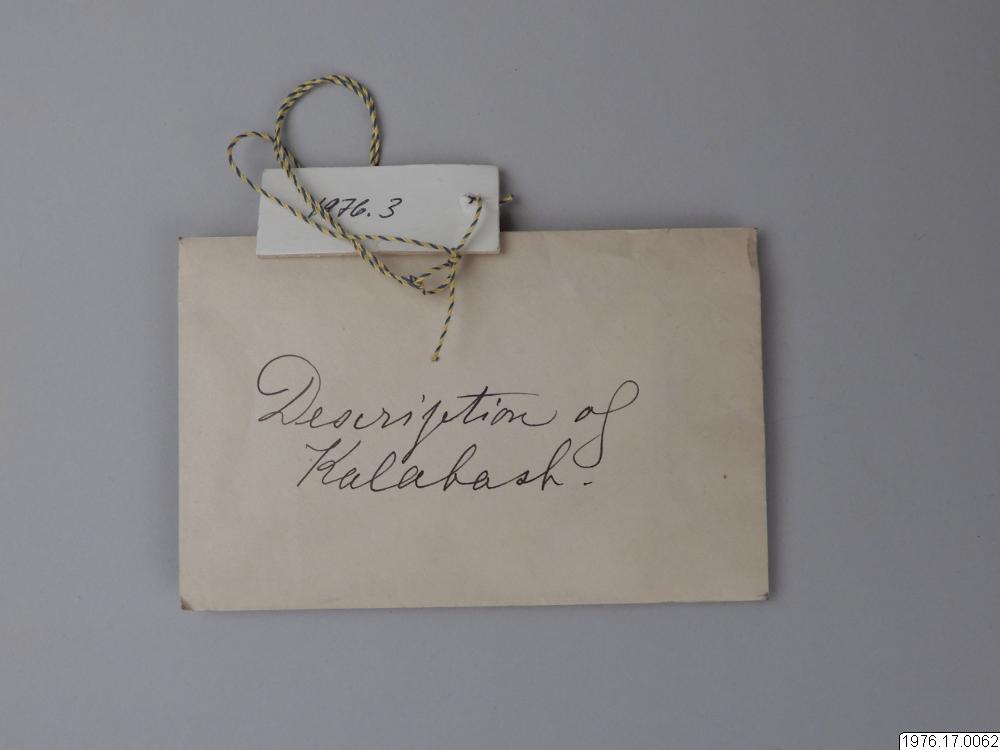 1976.3
Description of
Kalabash.
1976.17.0062